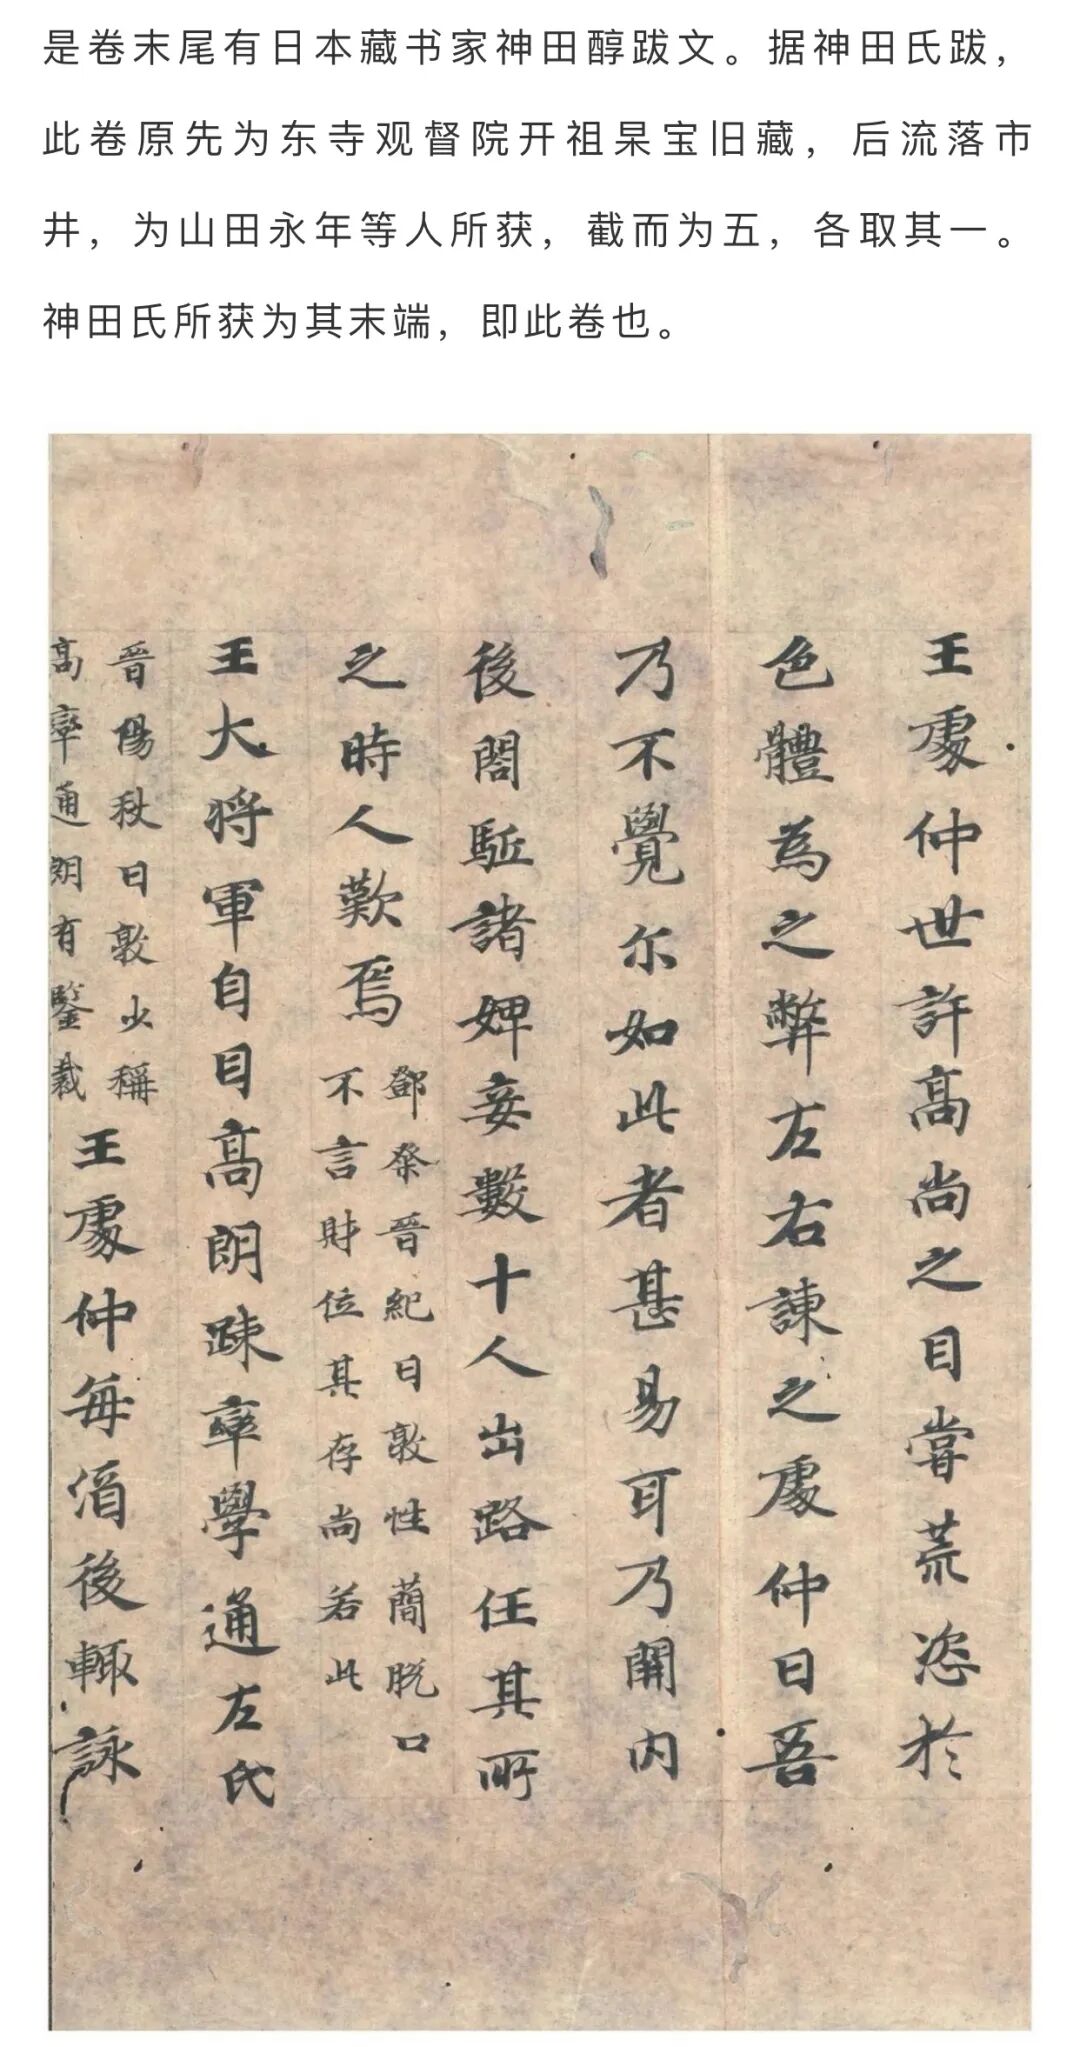 是卷末尾有日本藏书家神田醇跋文。据神田氏跋，
此卷原先为东寺观督院开祖杲宝旧藏，后流落市
井，为山田永年等人所获，截而为五，各取其一。
神田氏所获为其末端，即此卷也。
王處仲世許髙尚之目甞荒恣於
色體為之弊左右諫之處仲曰吾
乃不覺尓如此者甚易耳乃開内
後閤駈諸婢妾數十人出路任其所
之時人歎焉
鄧粲晉紀曰敦性蕳脱口
不言財位其存尚若此
王大将軍自目髙朗踈率學通左氏
晉陽秋曰敦少稱
髙率通朗有鑒裁
王處仲每酒後輙詠